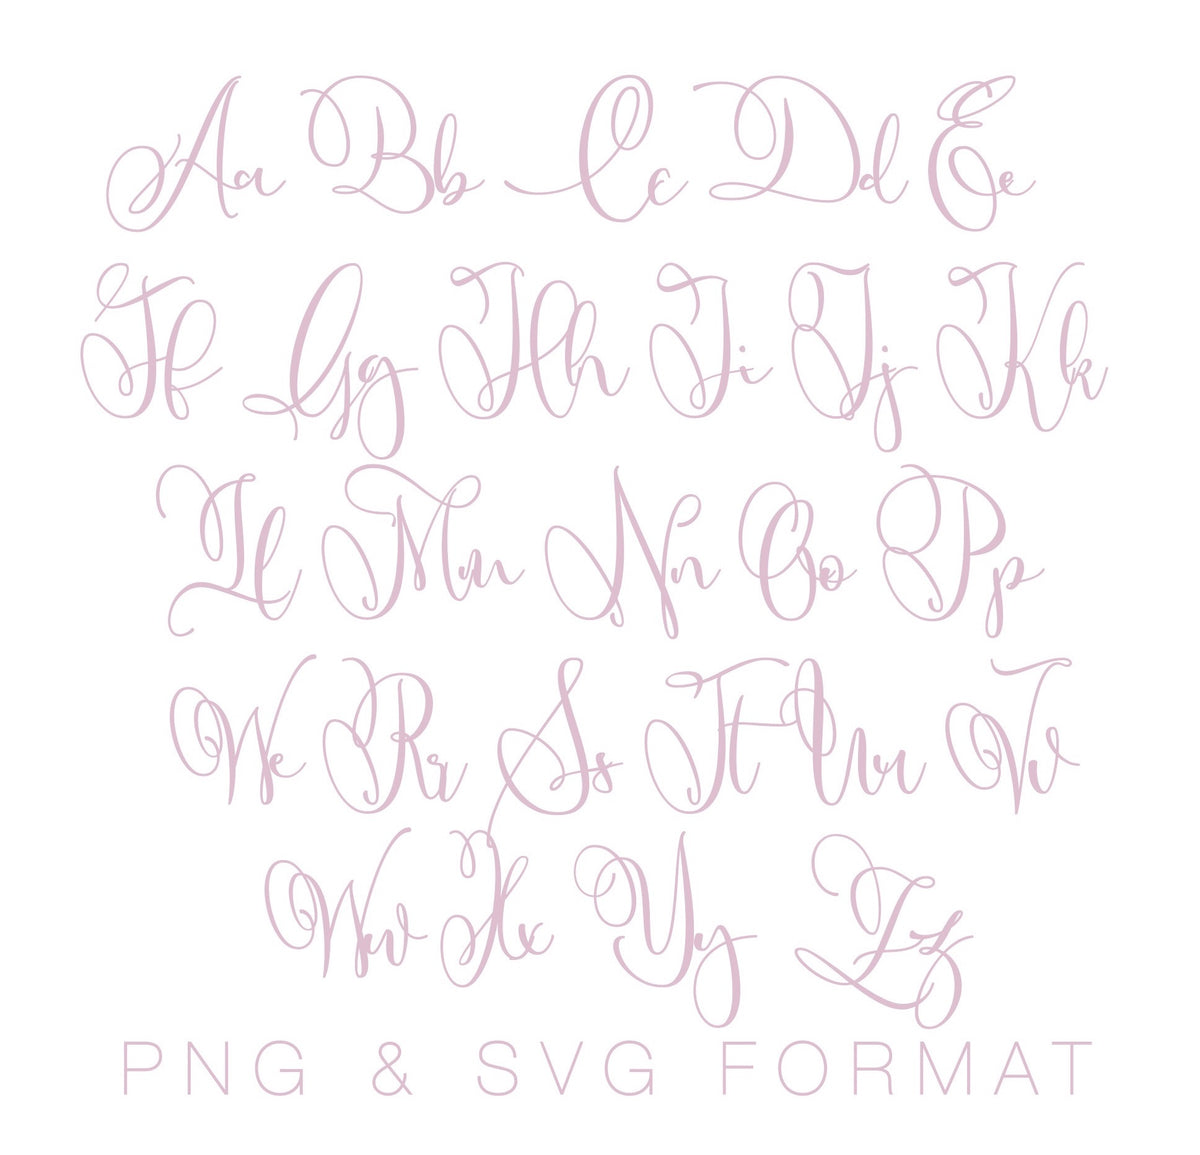 Aa Bb Cc Dd Ee
Ff Gg Hh Ii Jj Kk
Ll Mm Nn Oo Pp
We Rr Ss Tt Uu Vv
Ww Xx Yy Zz
PNG & SVG FORMAT